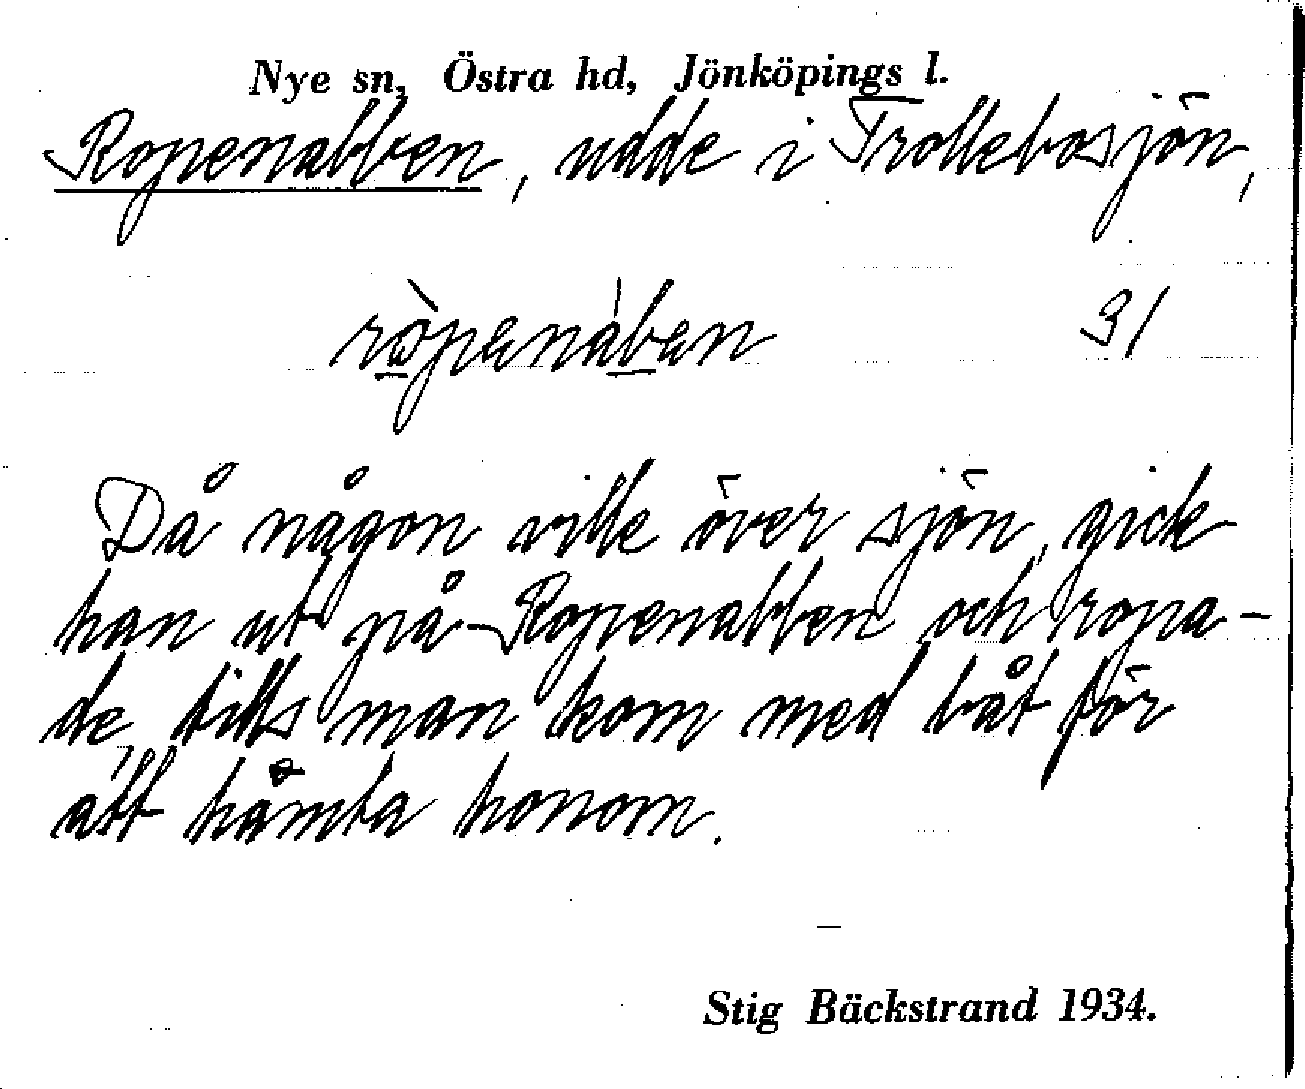 Nye sn, Östra hd, Jönköpings l.
Ropenabben, udde i Trollebosjön,
ròpenáben 3/
Då någon ville över sjön, gick
han ut på Ropenabben och ropa-
de, tills man kom med båt för
att hämta honom.
Stig Bäckstrand 1934.